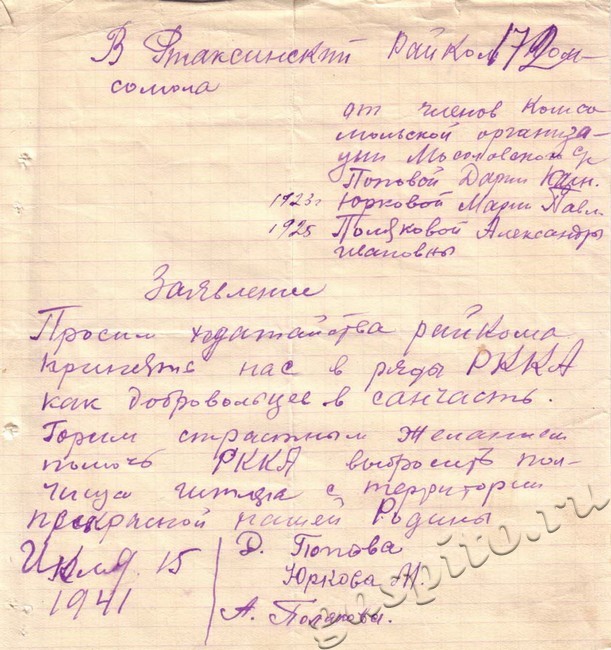 В Птаксинский Райком Ком-
172
сомола
от членов Комсо
мольской организа-
ции Мосоловской ср
Поповой Дарии
1923г Юрковой Марии Павл.
1925 Поляковой Александры
ивановны
Заявление
Просим ходатайства райкома
принять нас в ряды РККА
как добровольцев в санчасть.
Горим страстным желанием
помочь РККА выбросить пол-
чища гитлера с территории
прекрасной нашей Родины
Июля 15
1941
Д. Попова
Юркова М.
А. Полякова.
guspito.ru